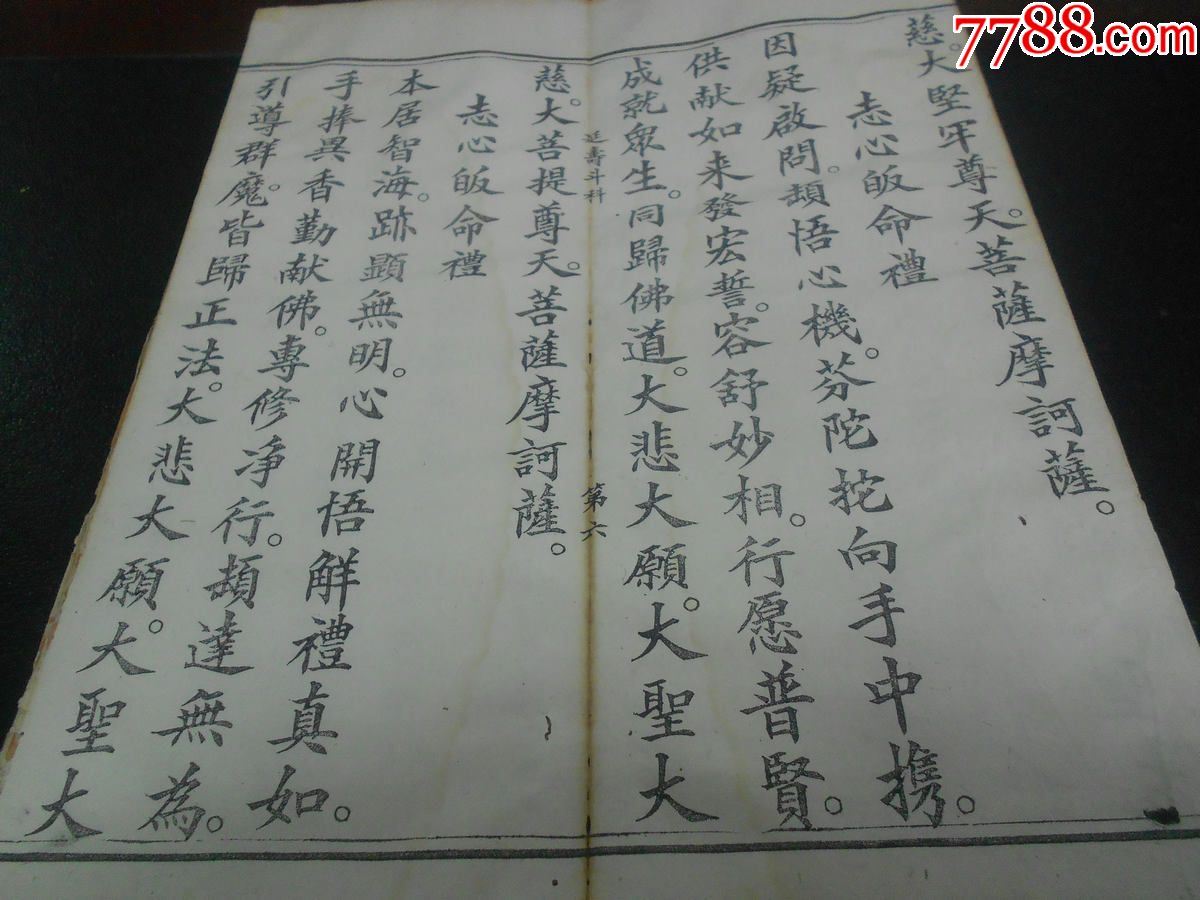 7788.com
慈。大堅牢尊天。菩薩摩訶薩。
志心皈命禮
因疑啟問。頡悟心機。芬陀挓向手中携。
供献如来發宏誓。容舒妙相。行愿普賢。
成就衆生。同歸佛道。大悲大願。大聖大
慈。大菩提尊天。菩薩摩訶薩。
延壽斗科
第六
志心皈命禮
本居智海。跡顯無明。心開悟解禮真如。
手捧異香勤献佛。專修净行。頡達無為。
引導群魔。皆歸正法。大悲大願。大聖大